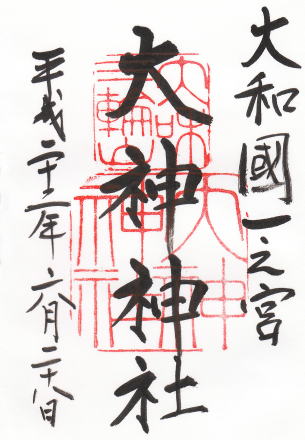 大和國一之宮
大神神社
平成二十二年六月二十八日
大神神社